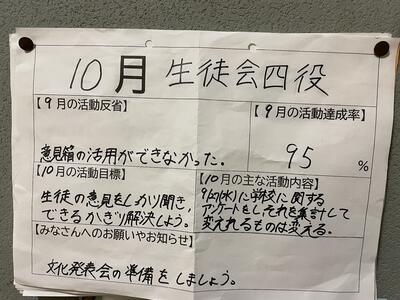 10月 生徒会四役
【9月の活動反省】
意見箱の活用ができなかった.
【9月の活動達成率】
95 %
【10月の活動目標】
生徒の意見をしっかり聞き,
できるかぎり解決しよう。
【10月の主な活動内容】
9/27(水)に学校に関する
アンケートをし,それを集計して
変えれるものは変える.
【みなさんへのお願いやお知らせ】
文化発表会の準備をしましょう。